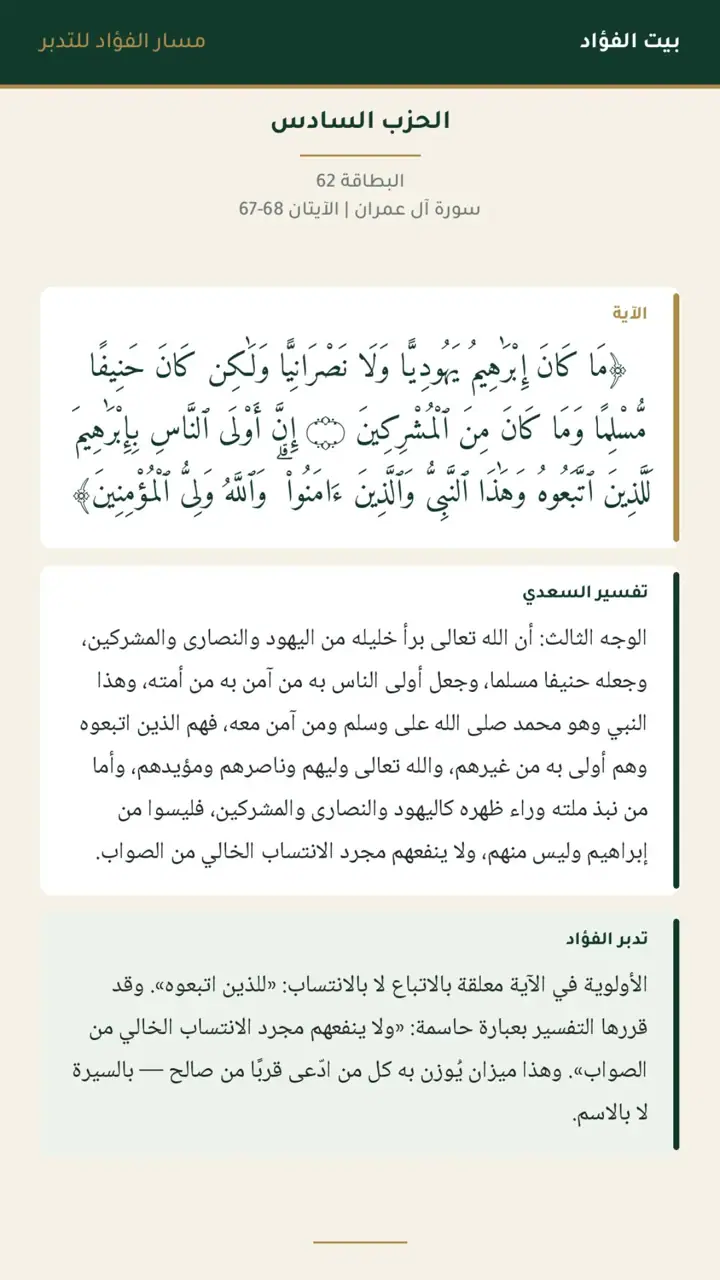 بيت الفؤاد
مسار الفؤاد للتدبر
الحزب السادس
البطاقة 62
سورة آل عمران | الآيتان 68-67
الآية
﴿مَا كَانَ إِبْرَٰهِيمُ يَهُودِيًّا وَلَا نَصْرَانِيًّا وَلَٰكِن كَانَ حَنِيفًا
مُّسْلِمًا وَمَا كَانَ مِنَ ٱلْمُشْرِكِينَ ۝ إِنَّ أَوْلَى ٱلنَّاسِ بِإِبْرَٰهِيمَ
لَلَّذِينَ ٱتَّبَعُوهُ وَهَٰذَا ٱلنَّبِىُّ وَٱلَّذِينَ ءَامَنُوا۟ ۗ وَٱللَّهُ وَلِىُّ ٱلْمُؤْمِنِينَ﴾
تفسير السعدي
الوجه الثالث: أن الله تعالى برأ خليله من اليهود والنصارى والمشركين،
وجعله حنيفا مسلما، وجعل أولى الناس به من آمن به من أمته، وهذا
النبي وهو محمد صلى الله على وسلم ومن آمن معه، فهم الذين اتبعوه
وهم أولى به من غيرهم، والله تعالى وليهم وناصرهم ومؤيدهم، وأما
من نبذ ملته وراء ظهره كاليهود والنصارى والمشركين، فليسوا من
إبراهيم وليس منهم، ولا ينفعهم مجرد الانتساب الخالي من الصواب.
تدبر الفؤاد
الأولوية في الآية معلقة بالاتباع لا بالانتساب: «للذين اتبعوه». وقد
قررها التفسير بعبارة حاسمة: «ولا ينفعهم مجرد الانتساب الخالي من
الصواب». وهذا ميزان يُوزن به كل من ادّعى قربًا من صالح — بالسيرة
لا بالاسم.